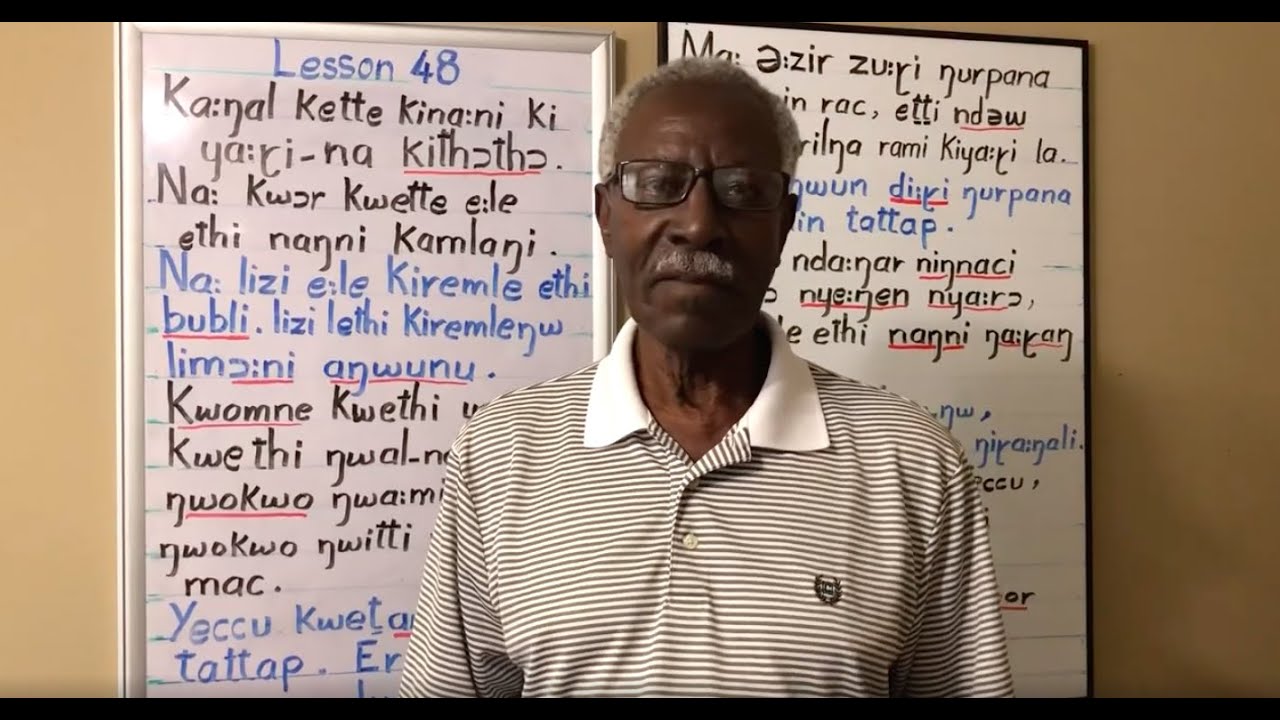 Lesson 48
Ka:ŋal kette kina:ni ki
ya:ɽi-na kithɔthɔ.
Na: kwɔr kwette e:le
ethi naŋni kamlaŋi.
Na: lizi e:le kiremle ethi
bubli. lizi lethi kiremleŋw
limɔ:ni aŋwunu.
Kwomne kwethi
kwethi ŋwal-na
ŋwokwo
ŋwokwo ŋwitti
mac.
Yeccu
tattap. Er
Ma: ə:zir zu:ɽi ŋurpana
in rac, eṯṯi ndəw
rilŋa rami kiya:ɽi la.
ŋwun di:ɽi ŋurpana
in tattap.
nda:ŋar niŋnaci
nye:ŋen nya:rɔ,
e ethi naŋni ŋa:ɽaŋ
ŋw,
ŋiɽa:ŋali.
eccu,
or